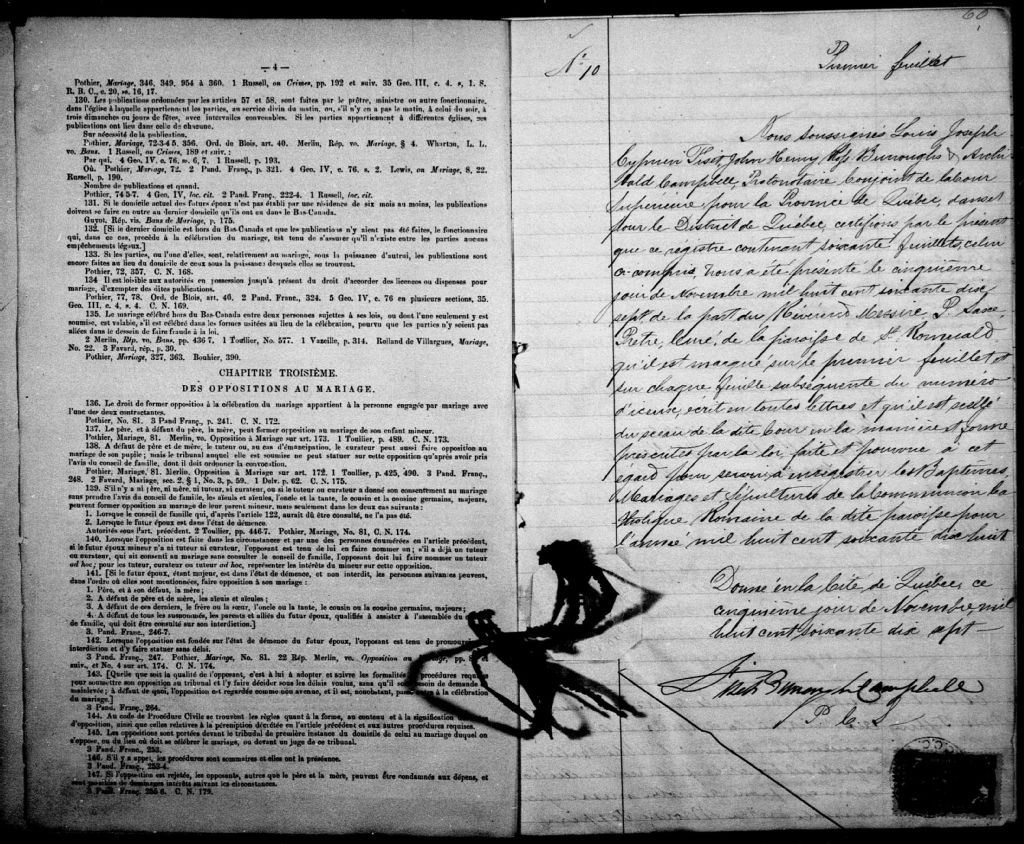 — 4 —
Pothier, Mariage, 346, 349, 954 à 360. 1 Russell, on Crimes, pp. 192 et suiv. 35 Geo. III, c. 4. s, 1. S.
R. B. C., c. 20, ss. 16, 17.
130. Les publications ordonnées par les articles 57 et 58, sont faites par le prêtre, ministre ou autre fonctionnaire,
dans l'église à laquelle appartiennent les parties, au service divin du matin, ou, s'il n'y en a pas le matin, à celui du soir, à
trois dimanches ou jours de fêtes, avec intervalles convenables. Si les parties appartiennent à différentes églises, ces
publications ont lieu dans celle de chacune.
Sur nécessité de la publication.
Pothier, Mariage, 72-3-4 5, 356. Ord. de Blois, art. 40. Merlin, Rép. vo. Mariage, § 4. Wharton, L. L.
vo. Bans. 1 Russell, on Crimes, 189 et suiv. :
Par qui. 4 Geo. IV, c. 76, ss. 6, 7. 1 Russell, p. 193.
Où. Pothier, Mariage, 72. 2 Pand. Franç., p. 321. 4 Geo. IV, c. 76, s. 2. Lewis, on Mariage, 8, 22.
Russell, p. 190.
Nombre de publications et quand.
Pothier, 74 5-7. 4 Geo. IV, loc. cit. 2 Pand. Franç., 222-4. 1 Russell, loc. cit.
131. Si le domicile actuel des futurs époux n'est pas établi par une résidence de six mois au moins, les publications
doivent se faire en outre au dernier domicile qu'ils ont eu dans le Bas-Canada.
Guyot, Rép. vis. Bans de Mariage, p. 175.
132. [Si le dernier domicile est hors du Bas-Canada et que les publications n'y aient pas été faites, le fonctionnaire
qui, dans ce cas, procède à la célébration du mariage, est tenu de s'assurer qu'il n'existe entre les parties aucuns
empêchements légaux.]
133. Si les parties, ou l'une d'elles, sont, relativement au mariage, sous la puissance d'autrui, les publications sont
encore faites au lieu du domicile de ceux sous la puissance desquels elles se trouvent.
Pothier, 72, 357. C. N. 168.
134 Il est loisible aux autorités en possession jusqu'à présent du droit d'accorder des licences ou dispenses pour
mariage, d'exempter des dites publications.
Pothier, 77, 78. Ord. de Blois, art. 40. 2 Pand. Franç., 324. 5 Geo. IV, c. 76 en plusieurs sections, 35.
Geo. III, c. 4, s. 4. C. N. 169.
135. Le mariage célébré hors du Bas-Canada entre deux personnes sujettes à ses lois, ou dont l'une seulement y est
soumise, est valable, s'il est célébré dans les formes usitées au lieu de la célébration, pourvu que les parties n'y soient pas
allées dans le dessein de faire fraude à la loi.
2 Merlin, Rép. vo. Bans, pp. 436 7. 1 Toullier, No. 577. 1 Vazeille, p. 314. Rolland de Villargues, Mariage,
No. 22. 3 Favard, rép., p. 30.
Pothier, Mariage, 327, 363. Bouhier, 390.
CHAPITRE TROISIÈME.
DES OPPOSITIONS AU MARIAGE.
136. Le droit de former opposition à la célébration du mariage appartient à la personne engagée par mariage avec
l'une des deux contractantes.
Pothier, No. 81. 3 Pand Franç., p. 241. C. N. 172.
137. Le père, et à défaut du père, la mère, peut former opposition au mariage de son enfant mineur.
Pothier, Mariage, 81. Merlin, vo. Opposition à Mariage sur art. 173. 1 Toullier, p. 489. C. N. 173.
138. A défaut de père et de mère, le tuteur ou, au cas d'émancipation, le curateur peut aussi faire opposition au
mariage de son pupille ; mais le tribunal auquel elle est soumise ne peut statuer sur cette opposition qu'après avoir pris
l'avis du conseil de famille, dont il doit ordonner la convocation.
Pothier, Mariage, 81. Merlin, Opposition à Mariage sur art. 172. 1 Toullier, p. 425, 490. 3 Pand. Franç.,
248. 2 Favard, Mariage, sec. 2, § 1, No. 3, p. 59. 1 Delv. p. 62. C. N. 175.
139. S'il n'y a ni père, ni mère, ni tuteur, ni curateur, ou si le tuteur ou curateur a donné son consentement au mariage
sans prendre l'avis du conseil de famille, les aïeuls et aïeules, l'oncle et la tante, le cousin et la cousine germains, majeurs,
peuvent former opposition au mariage de leur parent mineur, mais seulement dans les deux cas suivants :
1. Lorsque le conseil de famille qui, d'après l'article 122, aurait dû être consulté, ne l'a pas été.
2. Lorsque le futur époux est dans l'état de démence.
Autorités sous l'art. précédent. 2 Toullier, pp. 446-7. Pothier, Mariage, No. 81, C. N. 174.
140. Lorsque l'opposition est faite dans les circonstances et par une des personnes énumérées en l'article précédent,
si le futur époux mineur n'a ni tuteur ni curateur, l'opposant est tenu de lui en faire nommer un ; s'il a déjà un tuteur
ou curateur, qui ait consenti au mariage sans consulter le conseil de famille, l'opposant doit lui faire nommer un tuteur
ad hoc ; pour les tuteur, curateur ou tuteur ad hoc, représenter les intérêts du mineur sur cette opposition.
141. [Si le futur époux, étant majeur, est dans l'état de démence, et non interdit, les personnes suivantes peuvent,
dans l'ordre où elles sont mentionnées, faire opposition à son mariage :
1. Père, et à son défaut, la mère ;
2. A défaut de père et de mère, les aïeuls et aïeules ;
3. A défaut de ces derniers, le frère ou la sœur, l'oncle ou la tante, le cousin ou la cousine germains, majeurs ;
4. A défaut de tous les susnommés, les parents et alliés du futur époux, qualifiés à assister à l'assemblée du
de famille, qui doit être consulté sur son interdiction.]
3. Pand. Franç., 246-7.
142. Lorsque l'opposition est fondée sur l'état de démence du futur époux, l'opposant est tenu de
interdiction et d'y faire statuer sans délai.
3 Pand. Franç., 247. Pothier, Mariage, No. 81. 22 Rép. Merlin, vo. Opposition au
suiv., et No. 4 sur art. 174. C. N. 174.
143. [Quelle que soit la qualité de l'opposant, c'est à lui à adopter et suivre les formalités procédures requises
pour soumettre son opposition au tribunal et l'y faire décider sous les délais voulus, sans qu'il soit besoin de demande
mainlevée ; à défaut de quoi, l'opposition est regardée comme non avenue, et il est, nonobstant, à la célébration
du mariage.]
3 Pand. Franç., 264.
144. Au code de Procédure Civile se trouvent les règles quant à la forme, au contenu et à la signification
d'opposition, ainsi que celles relatives à la péremption décrétée en l'article précédent et aux autres procédures requises.
145. Les oppositions sont portées devant le tribunal de première instance du domicile de celui au mariage duquel on
s'oppose, ou du lieu où doit se célébrer le mariage, ou devant un juge de ce tribunal.
3 Pand. Franç., 253.
146. S'il y a appel, les procédures sont sommaires et elles ont la préséance.
3 Pand. Franç., 253-4.
147. Si l'opposition est rejetée, les opposants, autres que le père et la mère, peuvent être condamnés aux dépens, et
sont passibles de dommages intérêts suivant les circonstances.
3 Pand. Franç. 255 6. C. N. 179.
60
No. 10
Premier feuillet
Nous soussignés Louis Joseph
Cyprien Fiset, John Henry Ross Burroughs & Archi
bald Campbell, Protonotaire Conjoint de la Cour
Supérieure, pour la Province de Québec, dans et
pour le District de Québec, certifions par le présent
que ce registre contenant soixante feuillets, celui
ci compris, nous a été présenté le cinquième
jour de Novembre mil huit cent soixante dix
sept de la part du Révérend Messire P. Saxe
Prêtre, Curé, de la paroisse de St. Romuald
qu'il est marqué sur le premier feuillet et
sur chaque feuille subséquente du numéro
d'iceux, écrit en toutes lettres et qu'il est scellé
du sceau de la dite Cour en la manière et forme
prescrites par la loi, faite et pourvue à cet
égard pour servir à enregistrer les Baptêmes
Mariages et Sépultures de la Communion Ca
tholique Romaine de la dite paroisse pour
l'année mil huit cent soixante dix huit
Donné en la Cité de Québec, ce
cinquième jour de Novembre mil
huit cent soixante dix sept
Fiset Burroughs & Campbell
P. C. S.